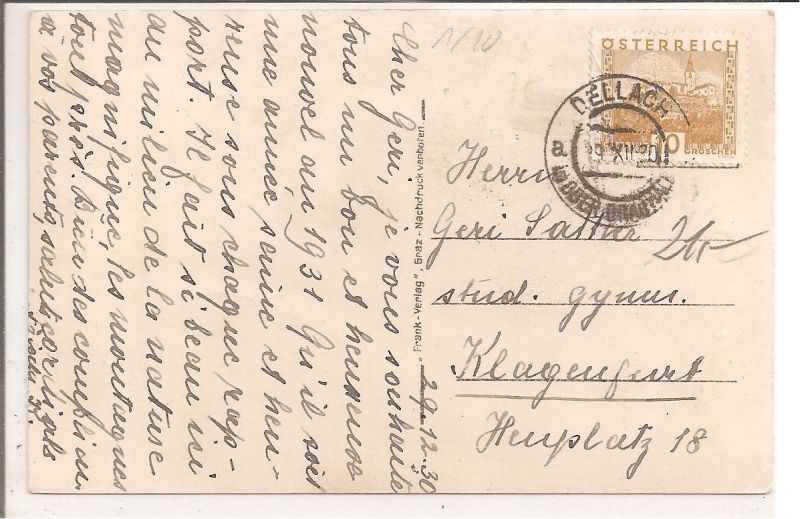 Cher Geri, je vous souhaite
tous un bon et heureuse
nouvel an 1931 Qu'il soit
une année saine et heu-
reuse sous chaque rap-
port. Il fait si beau ici
au milieu de la nature
magnifique, les montagnes
tout près. Bien des complim.
à vos parents, salut cordials
29.12.30
„Frank-Verlag", Graz - Nachdruck verboten
1/10
ÖSTERREICH
10
GROSCHEN
DELLACH
a
XII 30
Herrn
Geri
stud. gymn.
Klagenfurt
Heuplatz 18